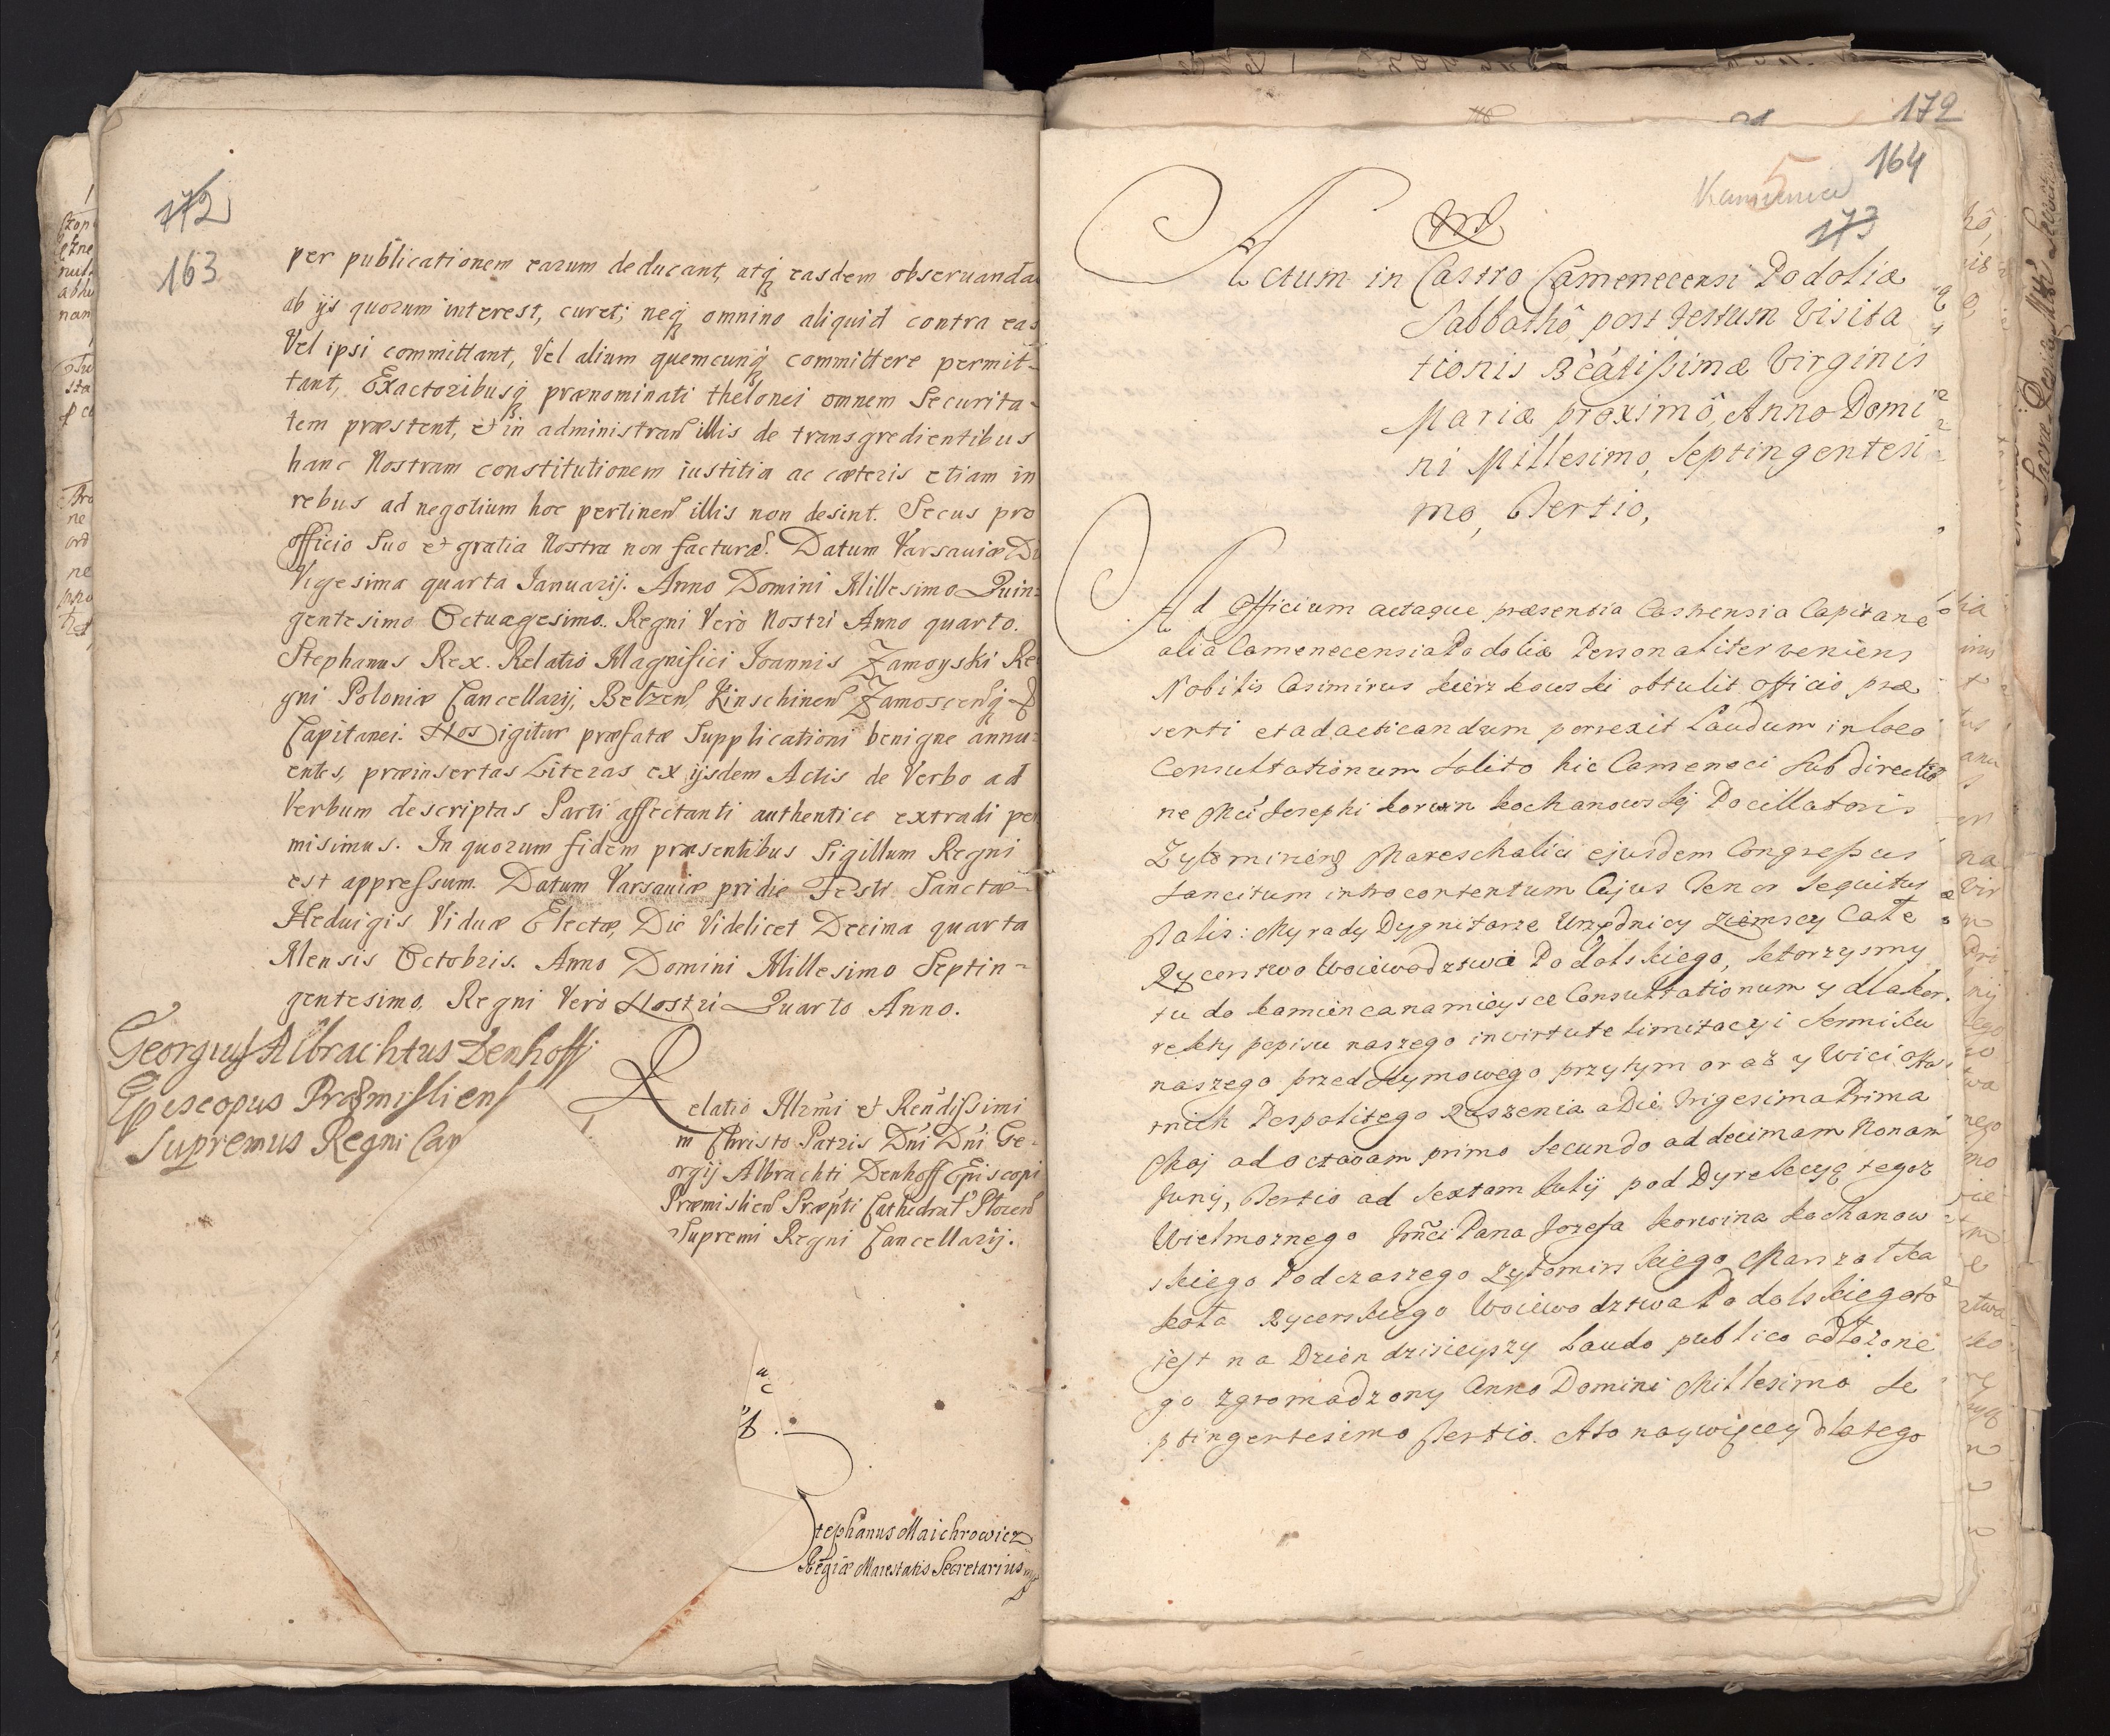 172
163
per publicationem earum deducant, atq̨ easdem observandas
ab ijs quorum interest, curet; neq̨ omnino aliquid contra eas
Vel ipsi committant, Vel alium quemcunq̨ committere permit-
tant, Exactoribusq̨ prænominati thelonei omnem Securita-
tem præstent, et in administran illis de transgredientibus
hanc Nostram constitutionem iustitia ac cæteris etiam in
rebus ad negotium hoc pertinen illis non desint. Secus pro
officio Suo et gratia Nostra non facturæ. Datum Varsaviæ Di
Vigesima quarta Ianuarij. Anno Domini Millesimo Quin-
gentesimo Octuagesimo. Regni Verò Nostri Anno quarto.
Stephanus Rex. Relatio Magnifici Ioannis Zamoyski Re
gni Poloniæ Cancellarij, Belzen Kinschinen Zamoscenq̨
Capitanei. Nos igitur præfatæ Supplicationi benigne annu-
entes, præinsertas Literas ex ijsdem Actis de Verbo ad
Verbum descriptas Parti affectanti authentice extradi per
misimus. In quorum fidem præsentibus Sigillum Regni
est appressum. Datum Varsaviæ pridie Festi Sanctæ
Heduigis Viduæ Electæ, Die Videlicet Decima quarta
Mensis Octobris. Anno Domini Millesimo Septin-
gentesimo, Regni Verò Nostri Quarto Anno.
Georgius Albrachtus Denhoff
Episcopus Præmislien
Supremus Regni Can
Relatio Illrmi et Rendissimi
in Christo Patris Dni Dni Ge-
orgij Albrachti Denhoff Episcopi
Præmislien Præpti Cathedral Plocen
Supremi Regni Cancellarij.
Stephanus Maichrowicz
Regiæ Maiestatis Secretarius
172
164
5
173
Actum in Castro Camenecensi Podoliæ
Sabbathô post Festum Visita
tionis Beatissimæ Virginis
Mariæ proximô, Anno Domi
ni Millesimo, Septingentesi
mo, Tertio,
Ad Officium actaque præsentia Castrensia Capitane
alia Camenecensia Podoliæ Personaliter veniens
Nobilis Casimirus Kierzkowski obtulit officio præ
senti et ad acticandum porrexit Laudum in loco
Consultationum solito hic Cameneci sub directio
ne Mci Josephi Korwin Kochanowskj Pocillatoris
Zytomirien Mareschalici ejusdem Congressus
Sancitum introcontentum Cujus Tenor Sequitur
Talis: My rady Dygnitarze Urzędnicy Ziemscy Całe
Rycerstwo Woiewodztwa Podolskiego, ktorzysmy
tu do Kamienca na mieysce Consultationum y dla kor.
rekty popisu naszego in virtute limitacyi Seymiku
naszego przedseymowego przytym oraz y Wici Osta.
tnich Pospolitego Ruszenia a Die Trigesima Prima
Maj ad octavam primo Secundo ad decimam Nonam
Junij, Tertio ad Sextam Julij pod Dyrekcyą tegoz
Wielmoznego Jmci Pana Jozefa Korwina Kochanow
skiego Podczaszego Zytomirskiego Marszałka
Koła Rycerskiego Woiewodztwa Podolskiego to
iest na Dzien dzisieyszy Laudo publico odłozone
go zgromadzony Anno Domini Millesimo Se
ptingentesimo Tertio. A to naywięcey dlatego